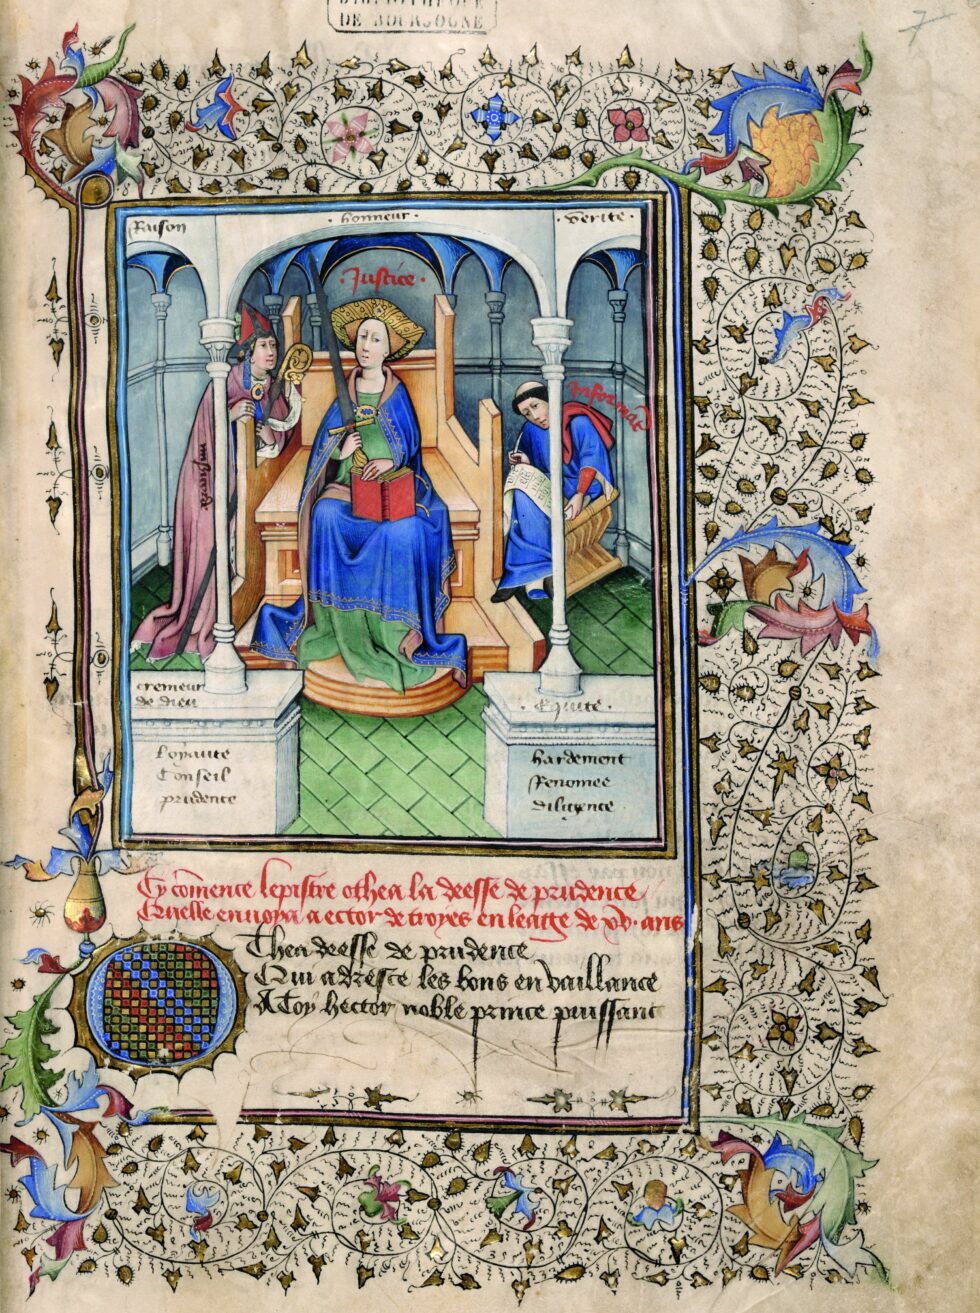 BIBLIOTHEQUE
DE BOURGOGNE
7
Raison
· honneur ·
· verite ·
· Justice ·
Informat
cremeur
de dieu
· Equite ·
loyaute
Conseil
prudence
hardement
Renomee
diligence
Cy comence lepistre othea la deesse de prudence
Quelle enuoya a ector de troyes en leage de xv · ans
Othea deesse de prudence
Qui adresce les bons en vaillance
A toy hector noble prince puissant